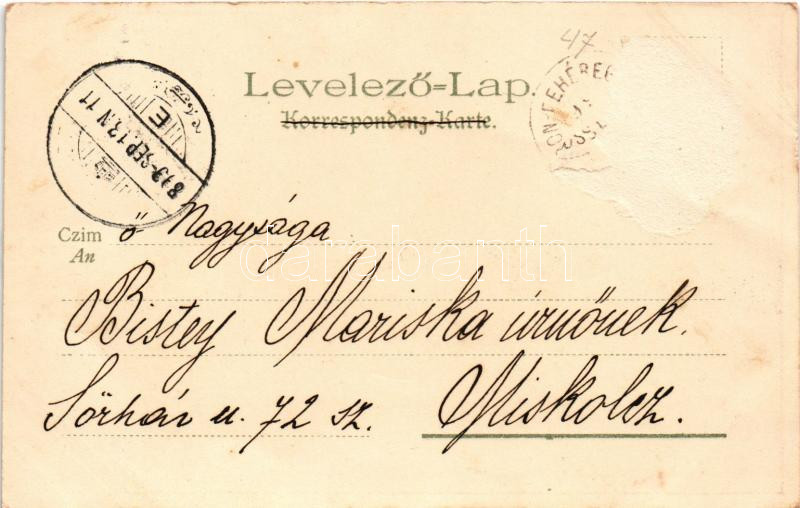 47
Levelező=Lap.
Korrespondenz-Karte.
899-SEP.13.N 11
E
Czim ő Nagysága
An
Bistey Mariska úrnőnek.
Sörház u. 72 sz. Miskolcz.
darabanth